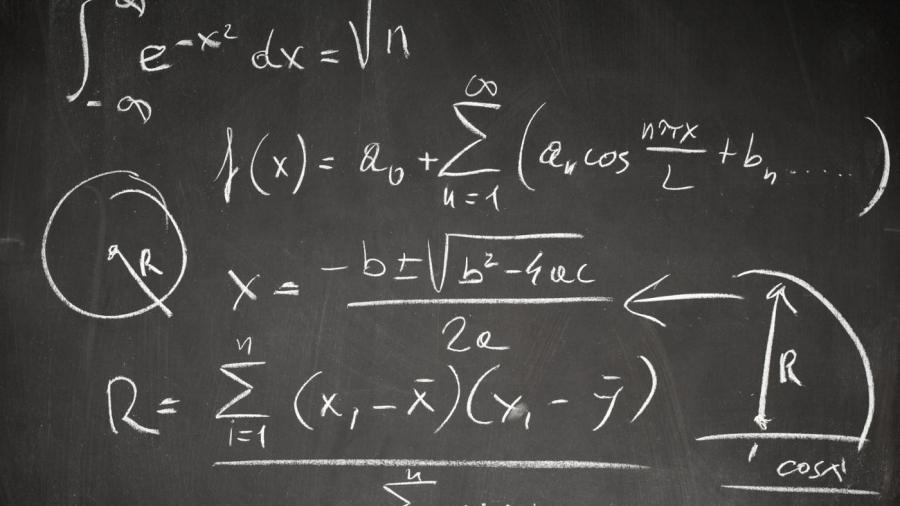 ∫_{-∞}^{∞} e^{-x²} dx = √n
f(x) = a₀ + ∑_{n=1}^{∞} (aₙ cos nπx/L + bₙ ......)
R
x = (-b ± √(b² - 4ac)) / 2a
R
R = ∑_{i=1}^{n} (x₁ - x̄)(y₁ - ȳ)
cosx
n
∑